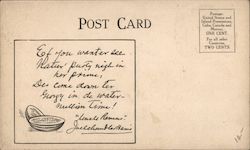 POST CARD
Postage:
United States and
Island Possessions,
Cuba, Canada and
Mexico,
ONE CENT.
For all other
Countries,
TWO CENTS.
Ef you wanter see
Natur' purty nigh in
her prime,
Des come down ter
Georgy in de water-
million time!
"Uncle Remus"
Joel Chandler Harris